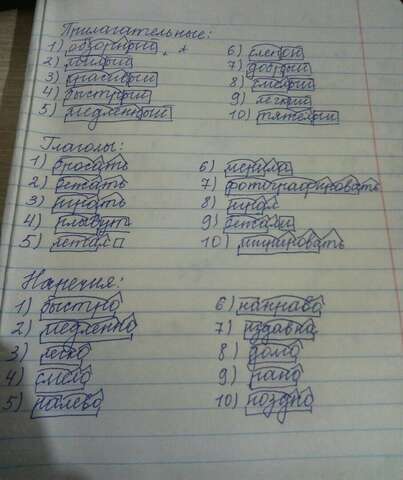 Прилагательные:
1) обзорный
2) милый
3) красивый
4) быстрый
5) медленный
6) слепой
7) добрый
8) смелый
9) легкий
10) тяжелый
Глаголы:
1) бросать
2) бежать
3) играть
4) плывут
5) летал
6) мерила
7) фотографировать
8) играл
9) бежали
10)
Наречия:
1) быстро
2) медленно
3) легко
4) смело
5) налево
6) направо
7) издавна
8) дома
9) рано
10) поздно